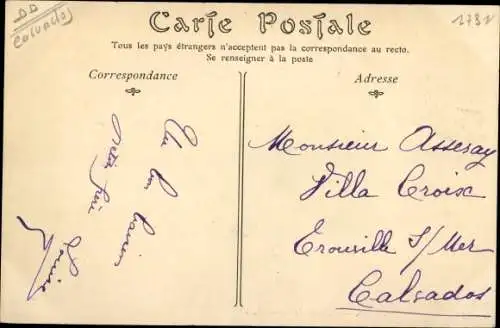 DD
(Calvados)
1731
Carte Postale
Tous les pays étrangers n'acceptent pas la correspondance au recto.
Se renseigner à la poste
Correspondance
Adresse
Un bon baiser
Louise
Monsieur Asseray
Villa Croix
Trouville S/Mer
Calvados